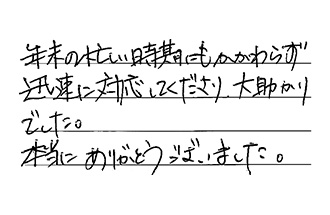 年末の忙しい時期にもかかわらず
迅速に対応してくださり、大助かり
でした。
本当にありがとうございました。